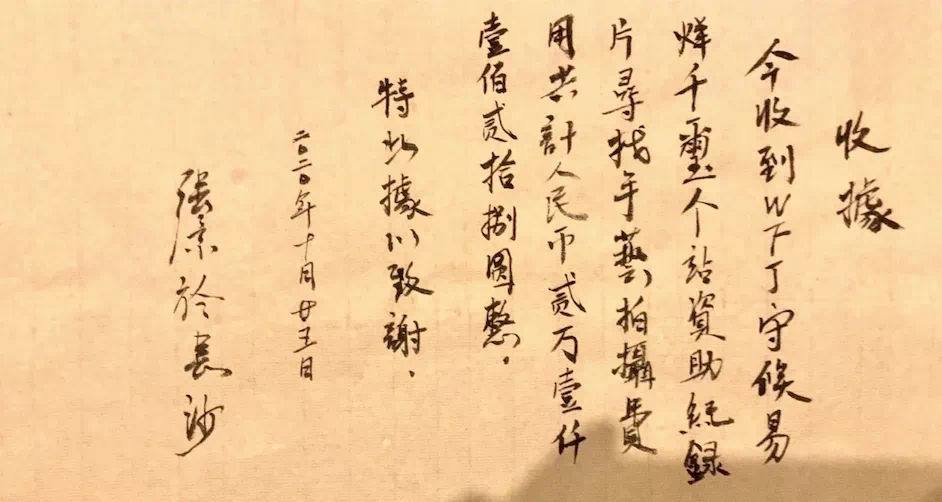 收據
今收到以下丁守候易
烊千璽个站資助紀錄
片尋找手藝拍攝費
用共計人民币貳万壹仟
壹佰贰拾捌圓整。
特此據以致謝.
二〇二〇年十月廿五日
張景於長沙